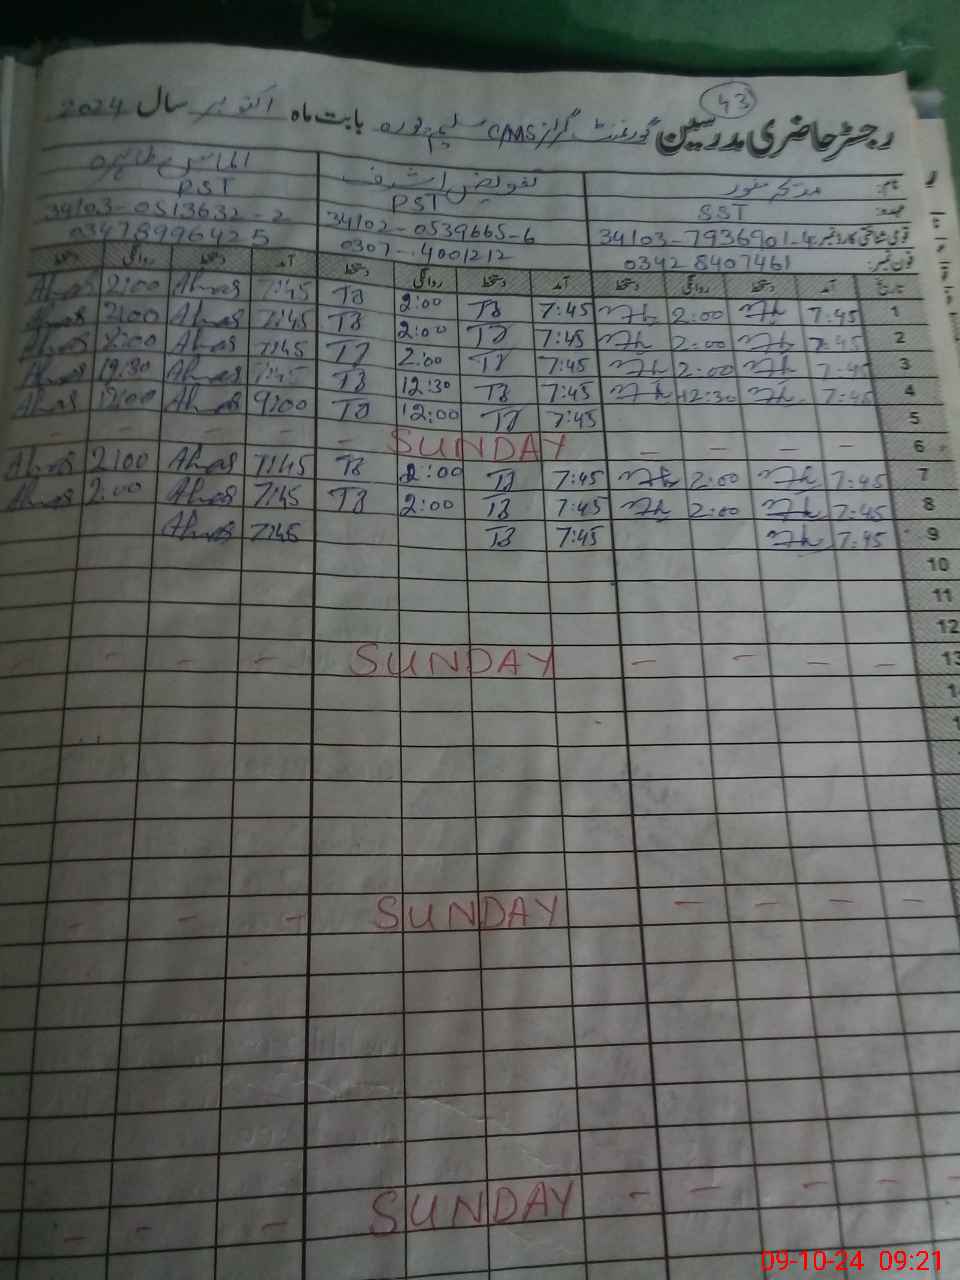 43
رجسٹر حاضری مدرسین گورنمنٹ گرلز CMS سلیم پورہ بابت ماہ اکتوبر سال 2024
نام: منور تفویض اشرف الماس طاہرہ
عہدہ: SST PST PST
قومی شناختی کارڈ نمبر 34103-7936901-4 34102-0539665-6 34103-0513632-2
فون نمبر: 0342 8407461 0307-4001212 03478996425
تاریخ آمد دستخط روانگی دستخط آمد دستخط روانگی دستخط آمد دستخط روانگی دستخط
1 7:45 2:00 7:45 TB 2:00 TB 7:45 Almas 2:00 Almas
2 7:45 2:00 7:45 TB 2:00 TB 7:45 Almas 2:00 Almas
3 7:45 2:00 7:45 TB 2:00 TB 7:45 Almas 2:00 Almas
4 7:45 12:30 7:45 TB 12:30 TB 7:45 Almas 12:30 Almas
5 7:45 TB 12:00 TB 9:00 Almas 12:00 Almas
6 - - - - SUNDAY - - - - -
7 7:45 2:00 7:45 TB 2:00 TB 7:45 Almas 2:00 Almas
8 7:45 2:00 7:45 TB 2:00 TB 7:45 Almas 2:00 Almas
9 7:45 7:45 TB 7:45 Almas
10
11
12
13 - - - - SUNDAY - - - -
- - - - SUNDAY - - -
- - - - - SUNDAY - - -
09-10-24 09:21